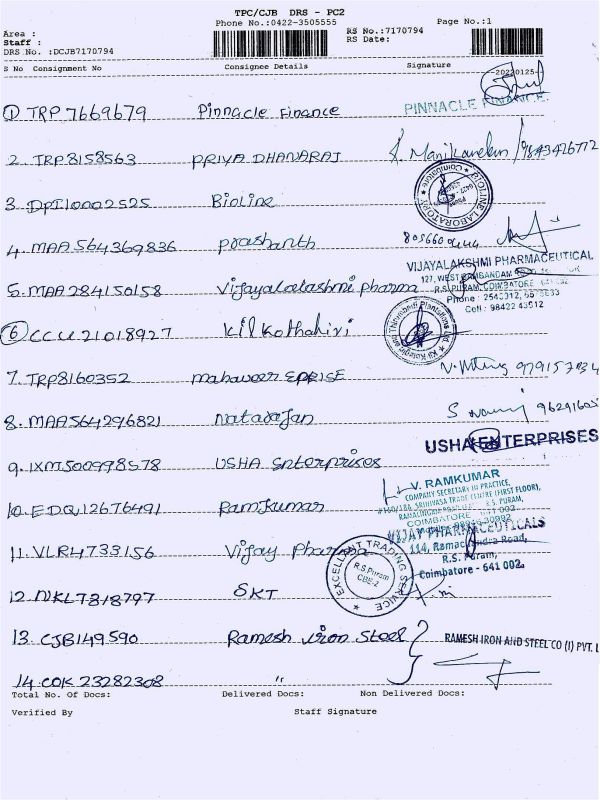 TPC/CJB DRS - PC2
Phone No.:0422-3505555 Page No.:1
Area :
Staff :
DRS No. :DCJB7170794
RS No.:7170794
RS Date:
S No Consignment No Consignee Details Signature
--20220125--
1 TRP7669679 Pinnacle Finance PINNACLE FINANCE
2. TRP8158563 PRIYA DHANARAJ
3. DPI10002525 Bioline BIOLINE LABORATORY
4. MAA564369836 Prashanth
VIJAYALAKSHMI PHARMACEUTICAL
5. MAA284150158 Vijayalalashmi pharma
R.S. PURAM, COIMBATORE
Cell : 98422 43512
6 CCU21018927 Kil Kothahiri
7. TRP8160352 mahaveer EPRISE
8. MAA564296821 Natarajan
USHA ENTERPRISES
9. IXM500998578 USHA Enterprises
V. RAMKUMAR
COMPANY SECRETARY IN PRACTICE,
10. EDQ12676491 Ramkumar
COIMBATORE
VIJAY PHARMACEUTICALS
11. VLR4733156 Vijay Pharma 114, Ramachandra Road,
R.S. Puram,
Coimbatore - 641 002.
EXCELLENT TRADING SERVICE
R.S.Puram
CBE-2
12. NKL7818797 SKT
13. CJB149590 Ramesh iron Steel RAMESH IRON AND STEEL CO (I) PVT. L
14. COK 23282308 "
Total No. Of Docs: Delivered Docs: Non Delivered Docs:
Verified By Staff Signature